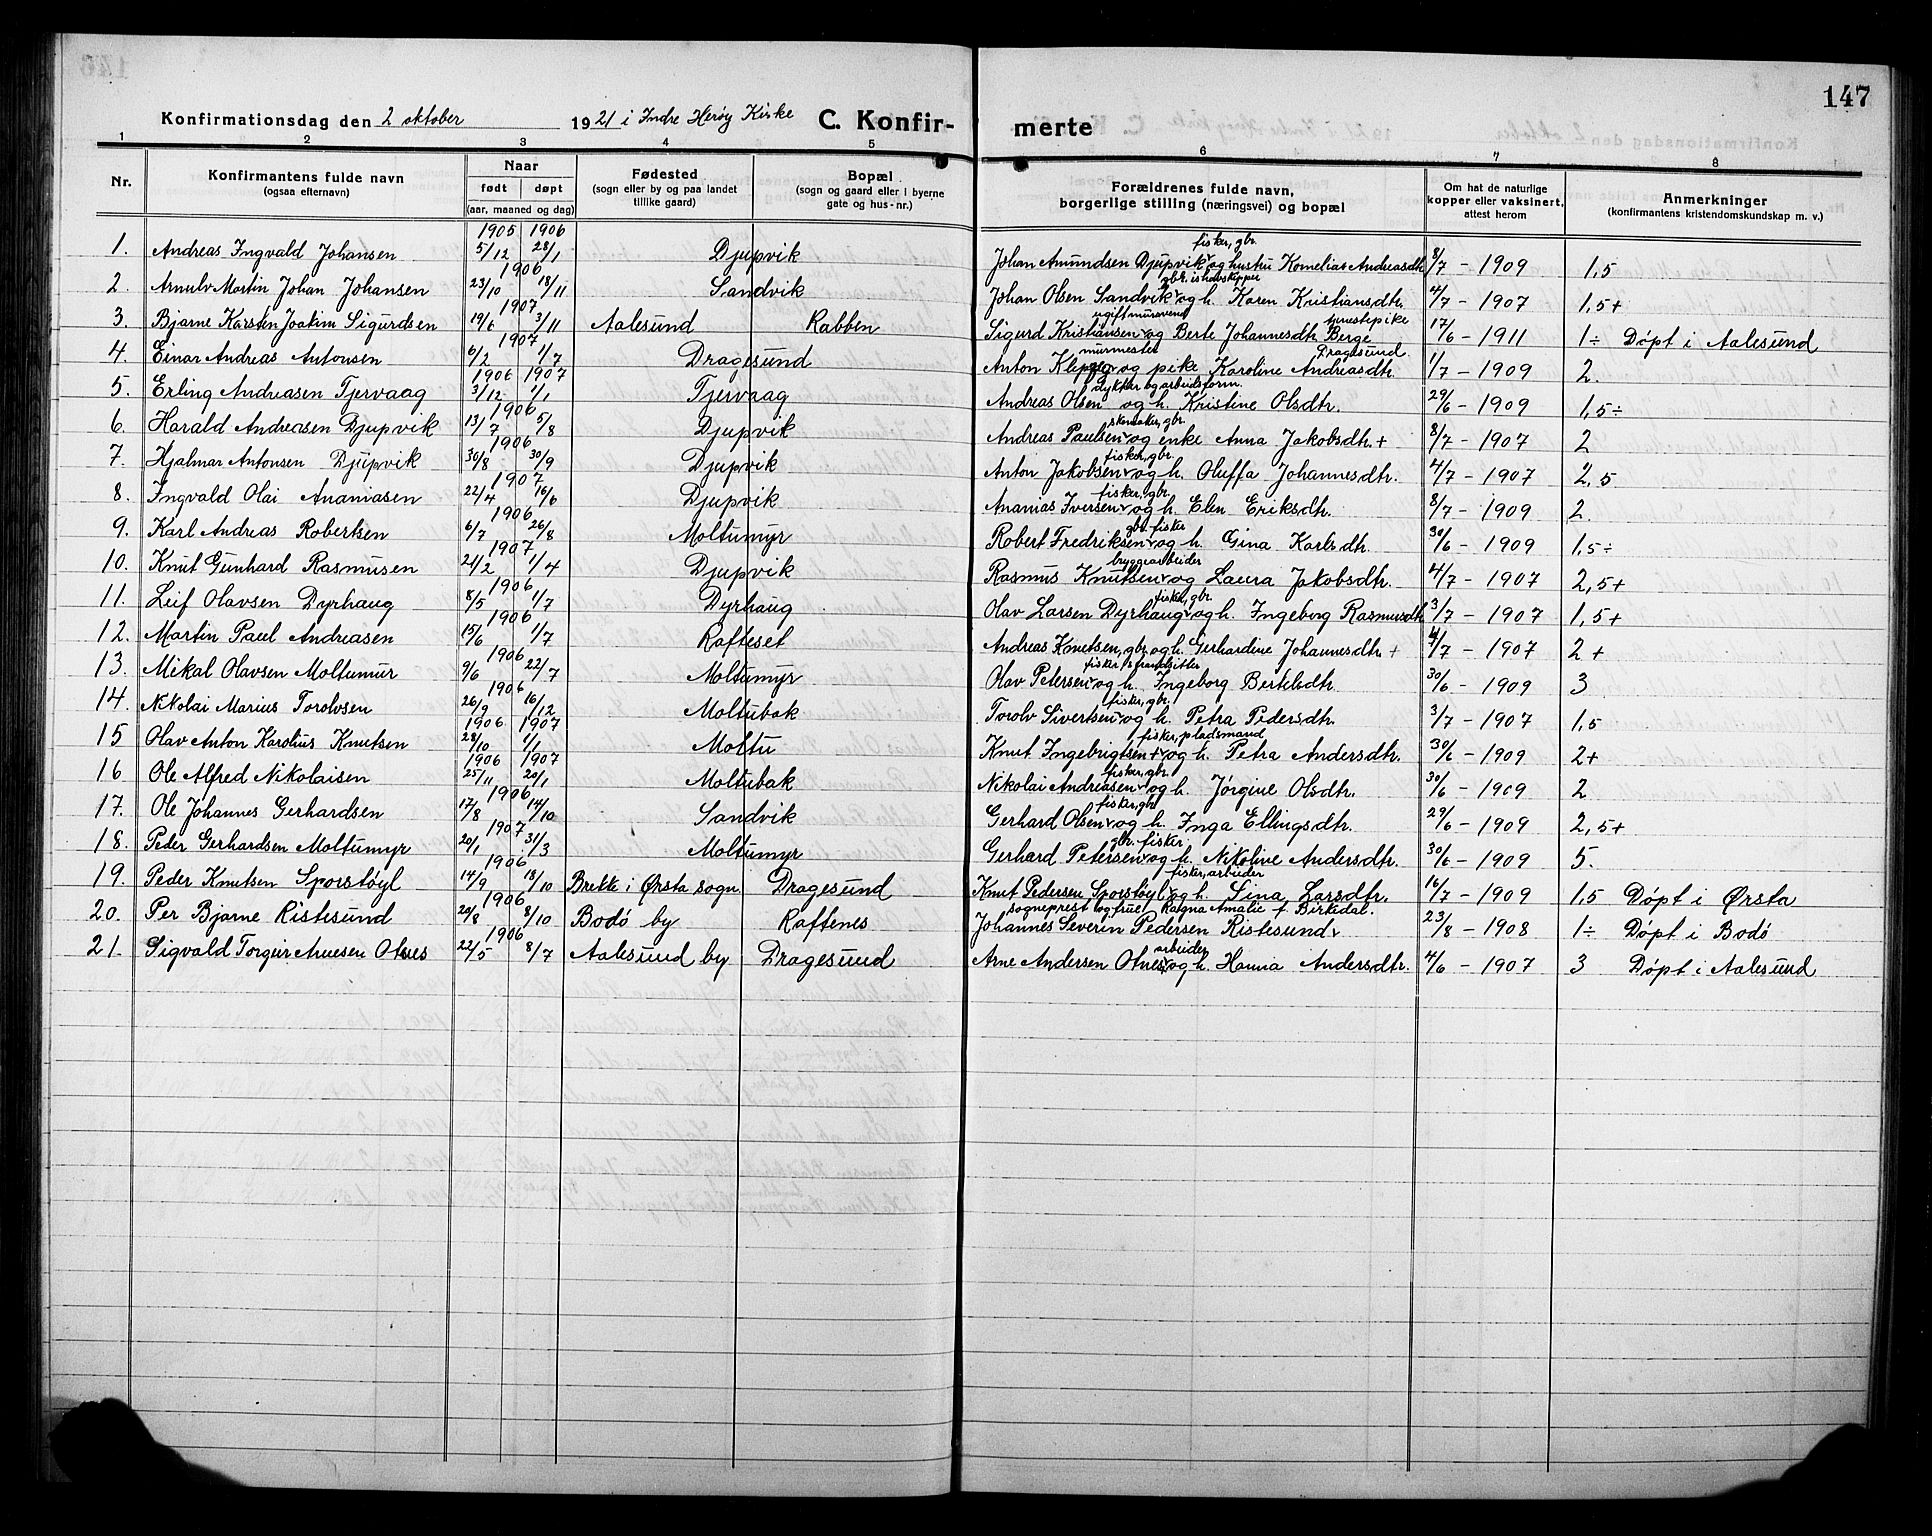 147
Konfirmationsdag den 2 oktober 1921 i Indre Herøy Kirke C. Konfir- merte
1 2 3 4 5 6 7 8
Nr. Konfirmantens fulde navn (ogsaa efternavn) Naar født døpt (aar, maaned og dag) Fødested (sogn eller by og paa landet tillike gaard) Bopæl (sogn og gaard eller i byerne gate og hus-nr.) Forældrenes fulde navn, borgerlige stilling (næringsvei) og bopæl Om hat de naturlige kopper eller vaksinert, attest herom Anmerkninger (konfirmantens kristendomskundskap m. v.)
1905 1906 fisker, gbr.
1. Andreas Ingvald Johansen 5/12 28/1 Djupvik Johan Amundsen Djupvik og hustru Kornelia Andreasdtr. 8/7 - 1909 1,5
1906 gbr. ishavskipper
2. Arnulv Martin Johan Johansen 23/10 18/11 Sandvik Johan Olsen Sandvik og h. Karen Kristiansdtr. 4/7 - 1907 1,5+
1907 ugift murersvend tjenestepike
3. Bjarne Karsten Joakim Sigurdsen 19/6 3/11 Aalesund Rabben Sigurd Kristiansen og Berte Johannesdtr. Berge 17/6 - 1911 1÷ Døpt i Aalesund
1907 murmester Dragesund
4. Einar Andreas Antonsen 6/2 1/7 Dragesund Anton Klepp og pike Karoline Andreasdtr. 1/7 - 1909 2.
1906 1907 dykker og arbeidsform.
5. Erling Andreasen Tjervaag 3/12 1/1 Tjervaag Andreas Olsen og h. Kristine Olsdtr. 29/6 - 1909 1,5÷
1906 skomaker, gbr.
6. Harald Andreasen Djupvik 13/7 5/8 Djupvik Andreas Paulsen og enke Anna Jakobsdtr. + 8/7 - 1907 2
1906 fisker, gbr.
7. Hjalmar Antonsen Djupvik 30/8 30/9 Djupvik Anton Jakobsen og h. Oluffa Johannesdtr. 4/7 - 1907 2,5
1907 fisker, gbr.
8. Ingvald Olai Ananiasen 22/4 16/6 Djupvik Ananias Iversen og h. Elen Eriksdtr. 8/7 - 1909 2.
1906 gbr. fisker
9. Karl Andreas Robertsen 6/7 26/8 Moltumyr Robert Fredriksen og h. Gina Karlsdtr. 30/6 - 1909 1,5÷
1907 bryggearbeider
10. Knut Gunhard Rasmusen 21/2 1/4 Djupvik Rasmus Knutsen og Laura Jakobsdtr. 4/7 - 1907 2,5+
1906 fisker, gbr.
11. Leif Olavsen Dyrhaug 8/5 1/7 Dyrhaug Olav Larsen Dyrhaug og h. Ingeborg Rasmusdtr. 3/7 - 1907 1,5+
1906
12. Martin Paul Andreasen 15/6 1/7 Rafteset Andreas Knutsen, gbr. og h. Gerhardine Johannesdtr. + 4/7 - 1907 2+
1906 fisker, strandsitter
13. Mikal Olavsen Moltumur 9/6 22/7 Moltumyr Olav Petersen og h. Ingeborg Bertelsdtr. 30/6 - 1909 3
1906 fisker, gbr.
14. Nikolai Marius Torolvsen 26/9 16/12 Moltubak Torolv Sivertsen og h. Petra Pedersdtr. 3/7 - 1907 1,5
1906 1907 fisker, pladsmand
15 Olav Anton Karolius Knutsen 28/10 1/1 Moltu Knut Ingebrigtsen + og h. Petra Andersdtr. 30/6 - 1909 2+
1906 1907 fisker, gbr.
16. Ole Alfred Nikolaisen 25/11 20/1 Moltubak Nikolai Andreasen og h. Jørgine Olsdtr. 30/6 - 1909 2
1906 fisker, gbr
17. Ole Johannes Gerhardsen 17/8 14/10 Sandvik Gerhard Olsen og h. Inga Ellingsdtr. 29/6 - 1909 2,5+
1907 gbr. fisker
18. Peder Gerhardsen Moltumyr 20/1 31/3 Moltumyr Gerhard Petersen og h. Nikoline Andersdtr. 30/6 - 1909 5.
1906 fisker, arbeider
19. Peder Knutsen Sporstøyl 14/9 13/10 Brekke i Ørsta sogn Dragesund Knut Pedersen Sporstøyl og h. Sina Larsdtr. 16/7 - 1909 1,5 Døpt i Ørsta
1906 sogneprest og frue Ragna Amalie f. Birkedal.
20. Per Bjarne Ristesund 29/8 8/10 Bodø by Raftenes Johannes Severin Pedersen Ristesund 23/8 - 1908 1÷ Døpt i Bodø
1906 arbeider
21. Sigvald Torgeir Arnesen Otnes 22/5 8/7 Aalesund by Dragesund Arne Andersen Otnes og h. Hanna Andersdtr. 4/6 - 1907 3 Døpt i Aalesund